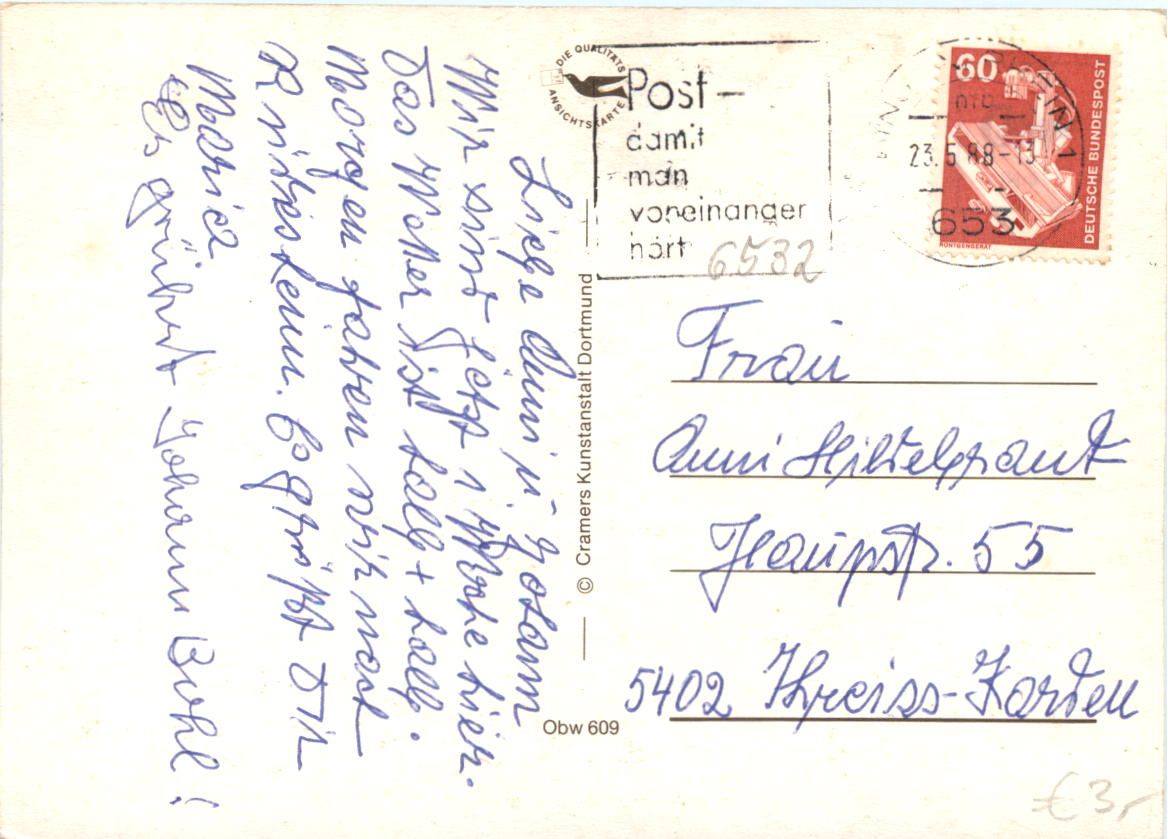 Liebe Anni u. Johann
Wir sind jetzt 1 Woche hier.
Das Wetter ist halb + halb.
Morgen fahren wir nach
Rüdesheim. Es grüßt Dir
Maria
Es grüßt Johann Bohl!
DIE QUALITÄTS
ANSICHTSKARTE
© Cramers Kunstanstalt Dortmund
Obw 609
Post-
damit
man
voneinander
hört
6532
BINGEN, RHEIN 1
23.5.88-13
653
60
DEUTSCHE BUNDESPOST
RÖNTGENGERÄT
Frau
Anni Hildebrant
Haupstr. 55
5402 Treiss-Karden
€ 3,-